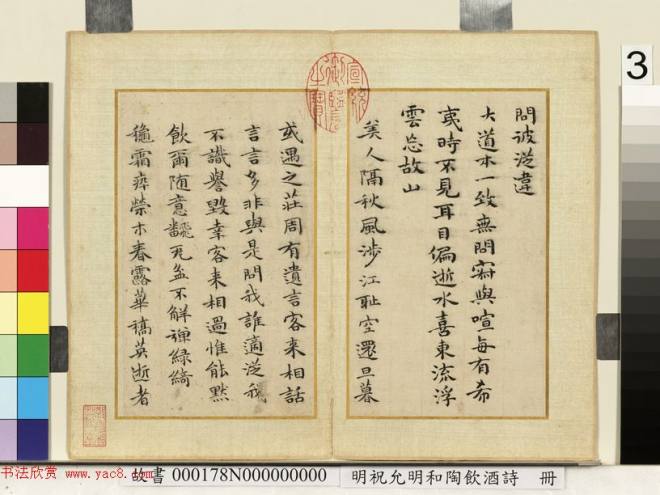 問彼從違
大道本一致無問寂與喧每有希
夷時不見耳目偏逝水喜東流浮
雲忘故山
美人隔秋風涉江恥空還旦暮
或遇之莊周有遺言客來相話
言言多非與是問我誰適從我
不識譽毀幸客來相過惟能默
飲爾隨意
瓦盆不解禪綠綺
霜瘁榮木春露華槁英逝者
3
故書 000178N000000000 明祝允明和陶飲酒詩 冊
书法欣赏 www.yac8.com